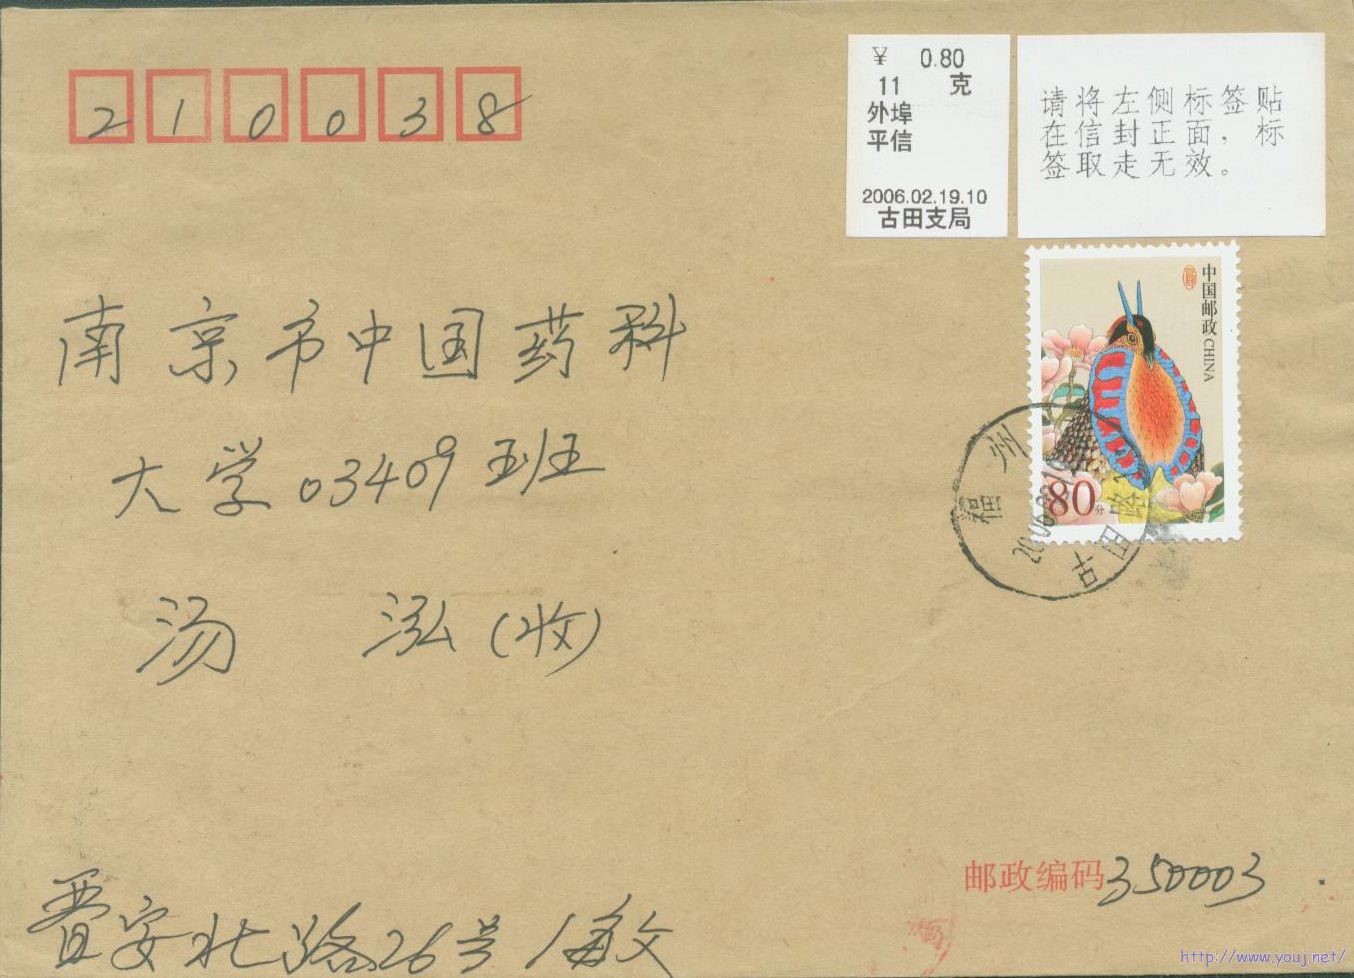 210038
¥ 0.80
11 克
外埠
平信
2006.02.19.10
古田支局
请将左侧标签贴
在信封正面，标
签取走无效。
中国邮政 CHINA
80分
福州
古田路
南京市中国药科
大学03409班
汤 泓(收)
邮政编码350003
晋安北路26号
http://www.youj.net/